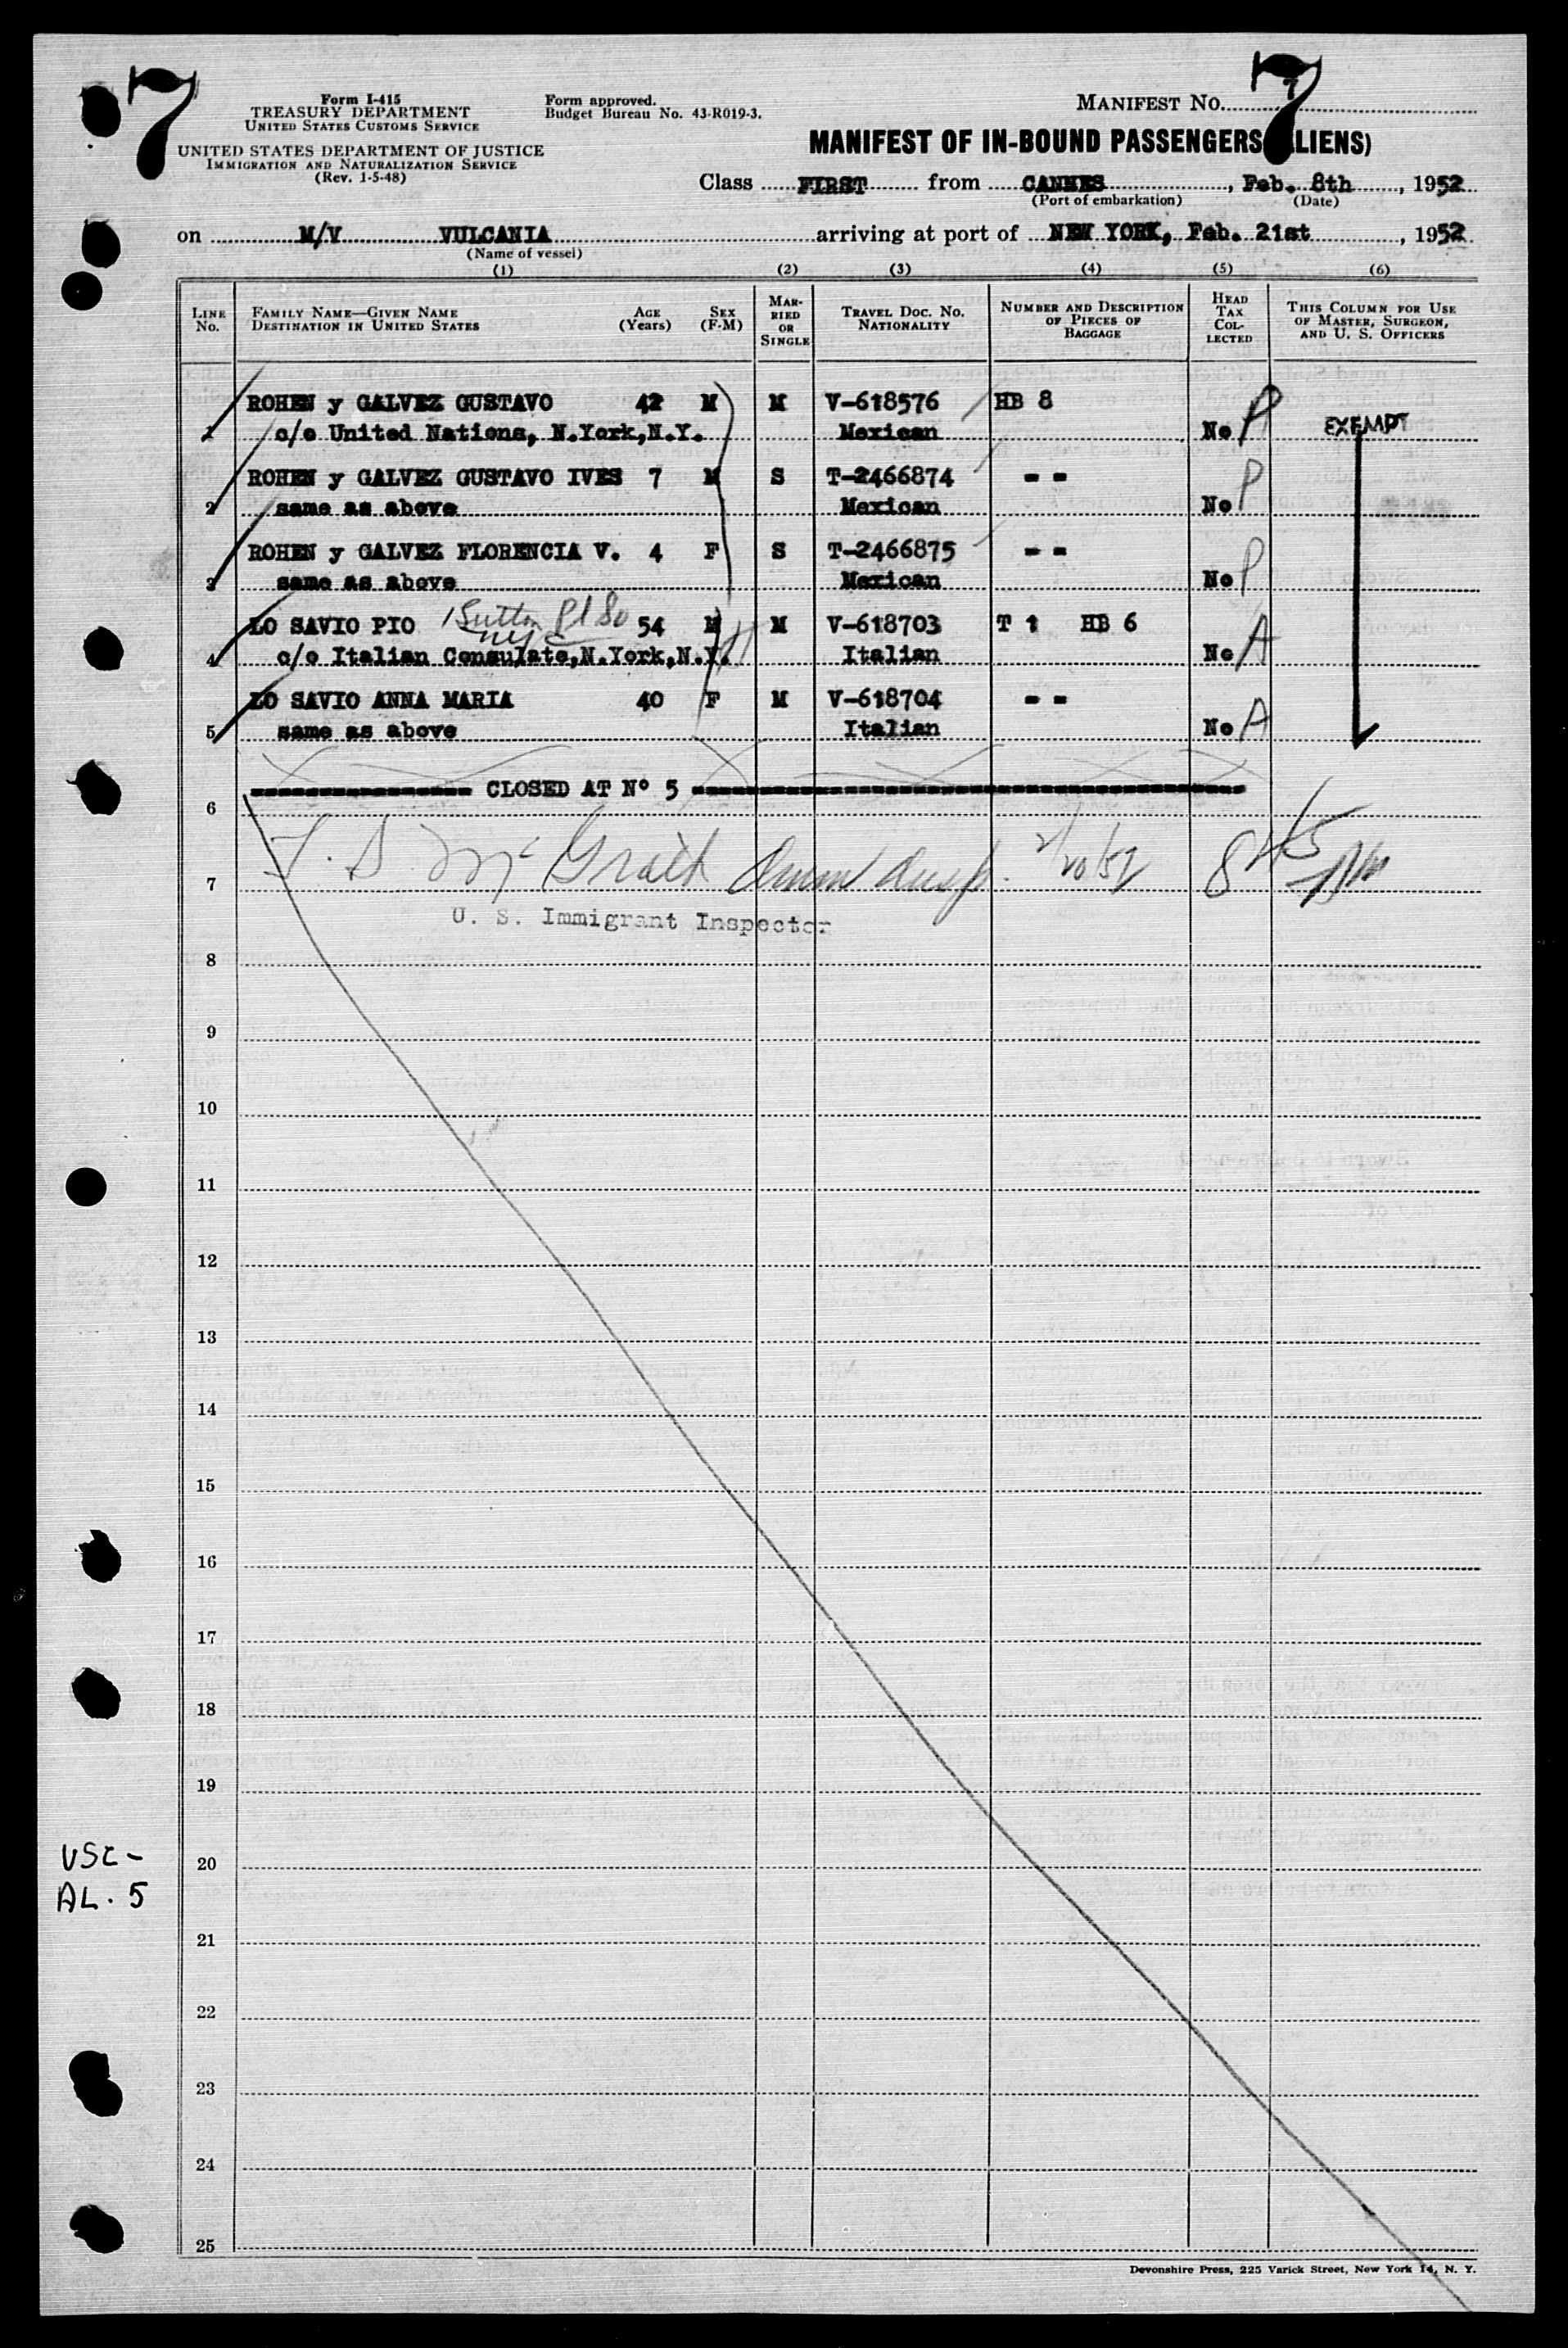 7
7
Form I-415
TREASURY DEPARTMENT
UNITED STATES CUSTOMS SERVICE
UNITED STATES DEPARTMENT OF JUSTICE
IMMIGRATION AND NATURALIZATION SERVICE
(Rev. 1-5-48)
Form approved.
Budget Bureau No. 43-R019-3.
MANIFEST NO. 7
MANIFEST OF IN-BOUND PASSENGERS (ALIENS)
Class FIRST from CANNES, Feb. 8th, 1952
(Port of embarkation) (Date)
on M/V VULCANIA arriving at port of NEW YORK, Feb. 21st, 1952
(Name of vessel)
(1) (2) (3) (4) (5) (6)
LINE No.
FAMILY NAME—GIVEN NAME
DESTINATION IN UNITED STATES
AGE (Years)
SEX (F-M)
MARRIED OR SINGLE
TRAVEL DOC. NO.
NATIONALITY
NUMBER AND DESCRIPTION OF PIECES OF BAGGAGE
HEAD TAX COLLECTED
THIS COLUMN FOR USE OF MASTER, SURGEON, AND U. S. OFFICERS
ROHEN y GALVEZ GUSTAVO 42 M M V-618576 HB 8
1 c/o United Nations, N.York,N.Y. Mexican No P EXEMPT
ROHEN y GALVEZ GUSTAVO IVES 7 M S T-2466874 - -
2 same as above Mexican No P
ROHEN y GALVEZ FLORENCIA V. 4 F S T-2466875 - -
3 same as above Mexican No P
LO SAVIO PIO 1 Sutton Pl So NYC 54 M M V-618703 T 1 HB 6
4 c/o Italian Consulate,N.York,N.Y. Italian No A
LO SAVIO ANNA MARIA 40 F M V-618704 - -
5 same as above Italian No A
CLOSED AT Nº 5
6
McGrath Immn Insp. 2/20/52 845
7
U. S. Immigrant Inspector
8
9
10
11
12
13
14
15
16
17
18
19
USC -
AL. 5
20
21
22
23
24
25
Devonshire Press, 225 Varick Street, New York 14, N. Y.